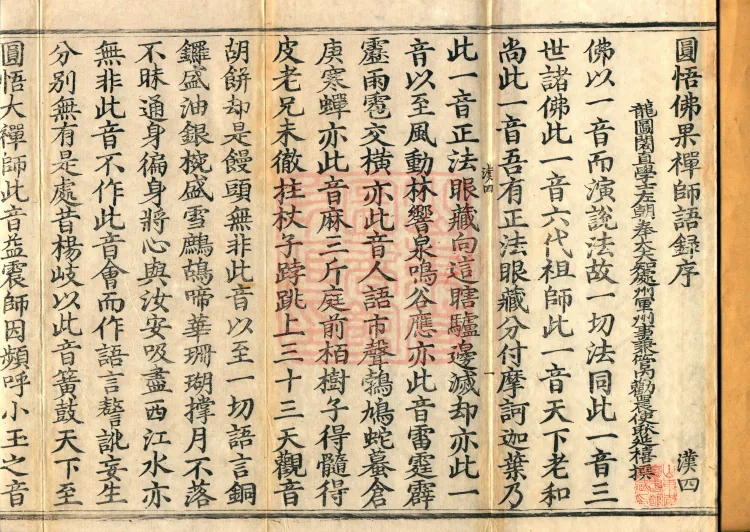 圓悟佛果禪師語錄序 漢四
龍圖閣直學士左朝奉大夫處州軍州事兼管內勸農使耿延禧撰
佛以一音而演說法故一切法同此一音三
世諸佛此一音六代祖師此一音天下老和
尚此一音吾有正法眼藏分付摩訶迦葉乃
漢四 一
此一音正法眼藏向這瞎驢邊滅却亦此一
音以至風動林響泉鳴谷應亦此音雷霆霹
靂雨雹交橫亦此音人語市聲鵓鳩蛇蟇倉
庚寒蟬亦此音麻三斤庭前栢樹子得髓得
皮老兄未徹拄杖子𨁝跳上三十三天觀音
胡餅却是饅頭無非此音以至一切語言銅
鑼盛油銀椀盛雪鷓鴣啼華珊瑚撑月不落
不昧通身徧身將心與汝安吸盡西江水亦
無非此音不作此音會而作語言謷訛妄生
分別無有是處昔楊岐以此音簧鼓天下至
圓悟大禪師此音益震師因頻呼小玉之音